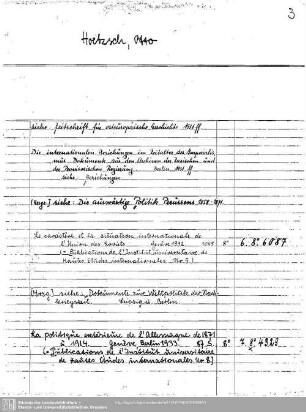 3
Hoetzsch, Otto
siehe Zeitschrift für osteuropäische Geschichte 1931 ff
Die internationalen Beziehungen im Zeitalter des Imperialis-
mus. Dokumente aus den Archiven der zarischen und
der Provisorischen Regierung. Berlin 1931 ff
siehe Beziehungen
(Hrsg.) siehe: Die auswärtige Politik Preussens 1858-1871.
Le caractère et la situation internationale de
l'Union des Soviets Genève 1932 8° 6. 8° 6087
(= Publications de l'Institut universitaire de
Hautes Etudes internationales No 7.)
(Hrsg.) siehe: Dokumente zur Weltpolitik der Nach-
kriegszeit. Leipzig u. Berlin.
La politique extérieure de l'Allemagne de 1871
à 1914. Genève Berlin 1933 67 S. 8° 7. 8° 4326
(= Publications de l'Institut universitaire
de Hautes Etudes internationales No 8)